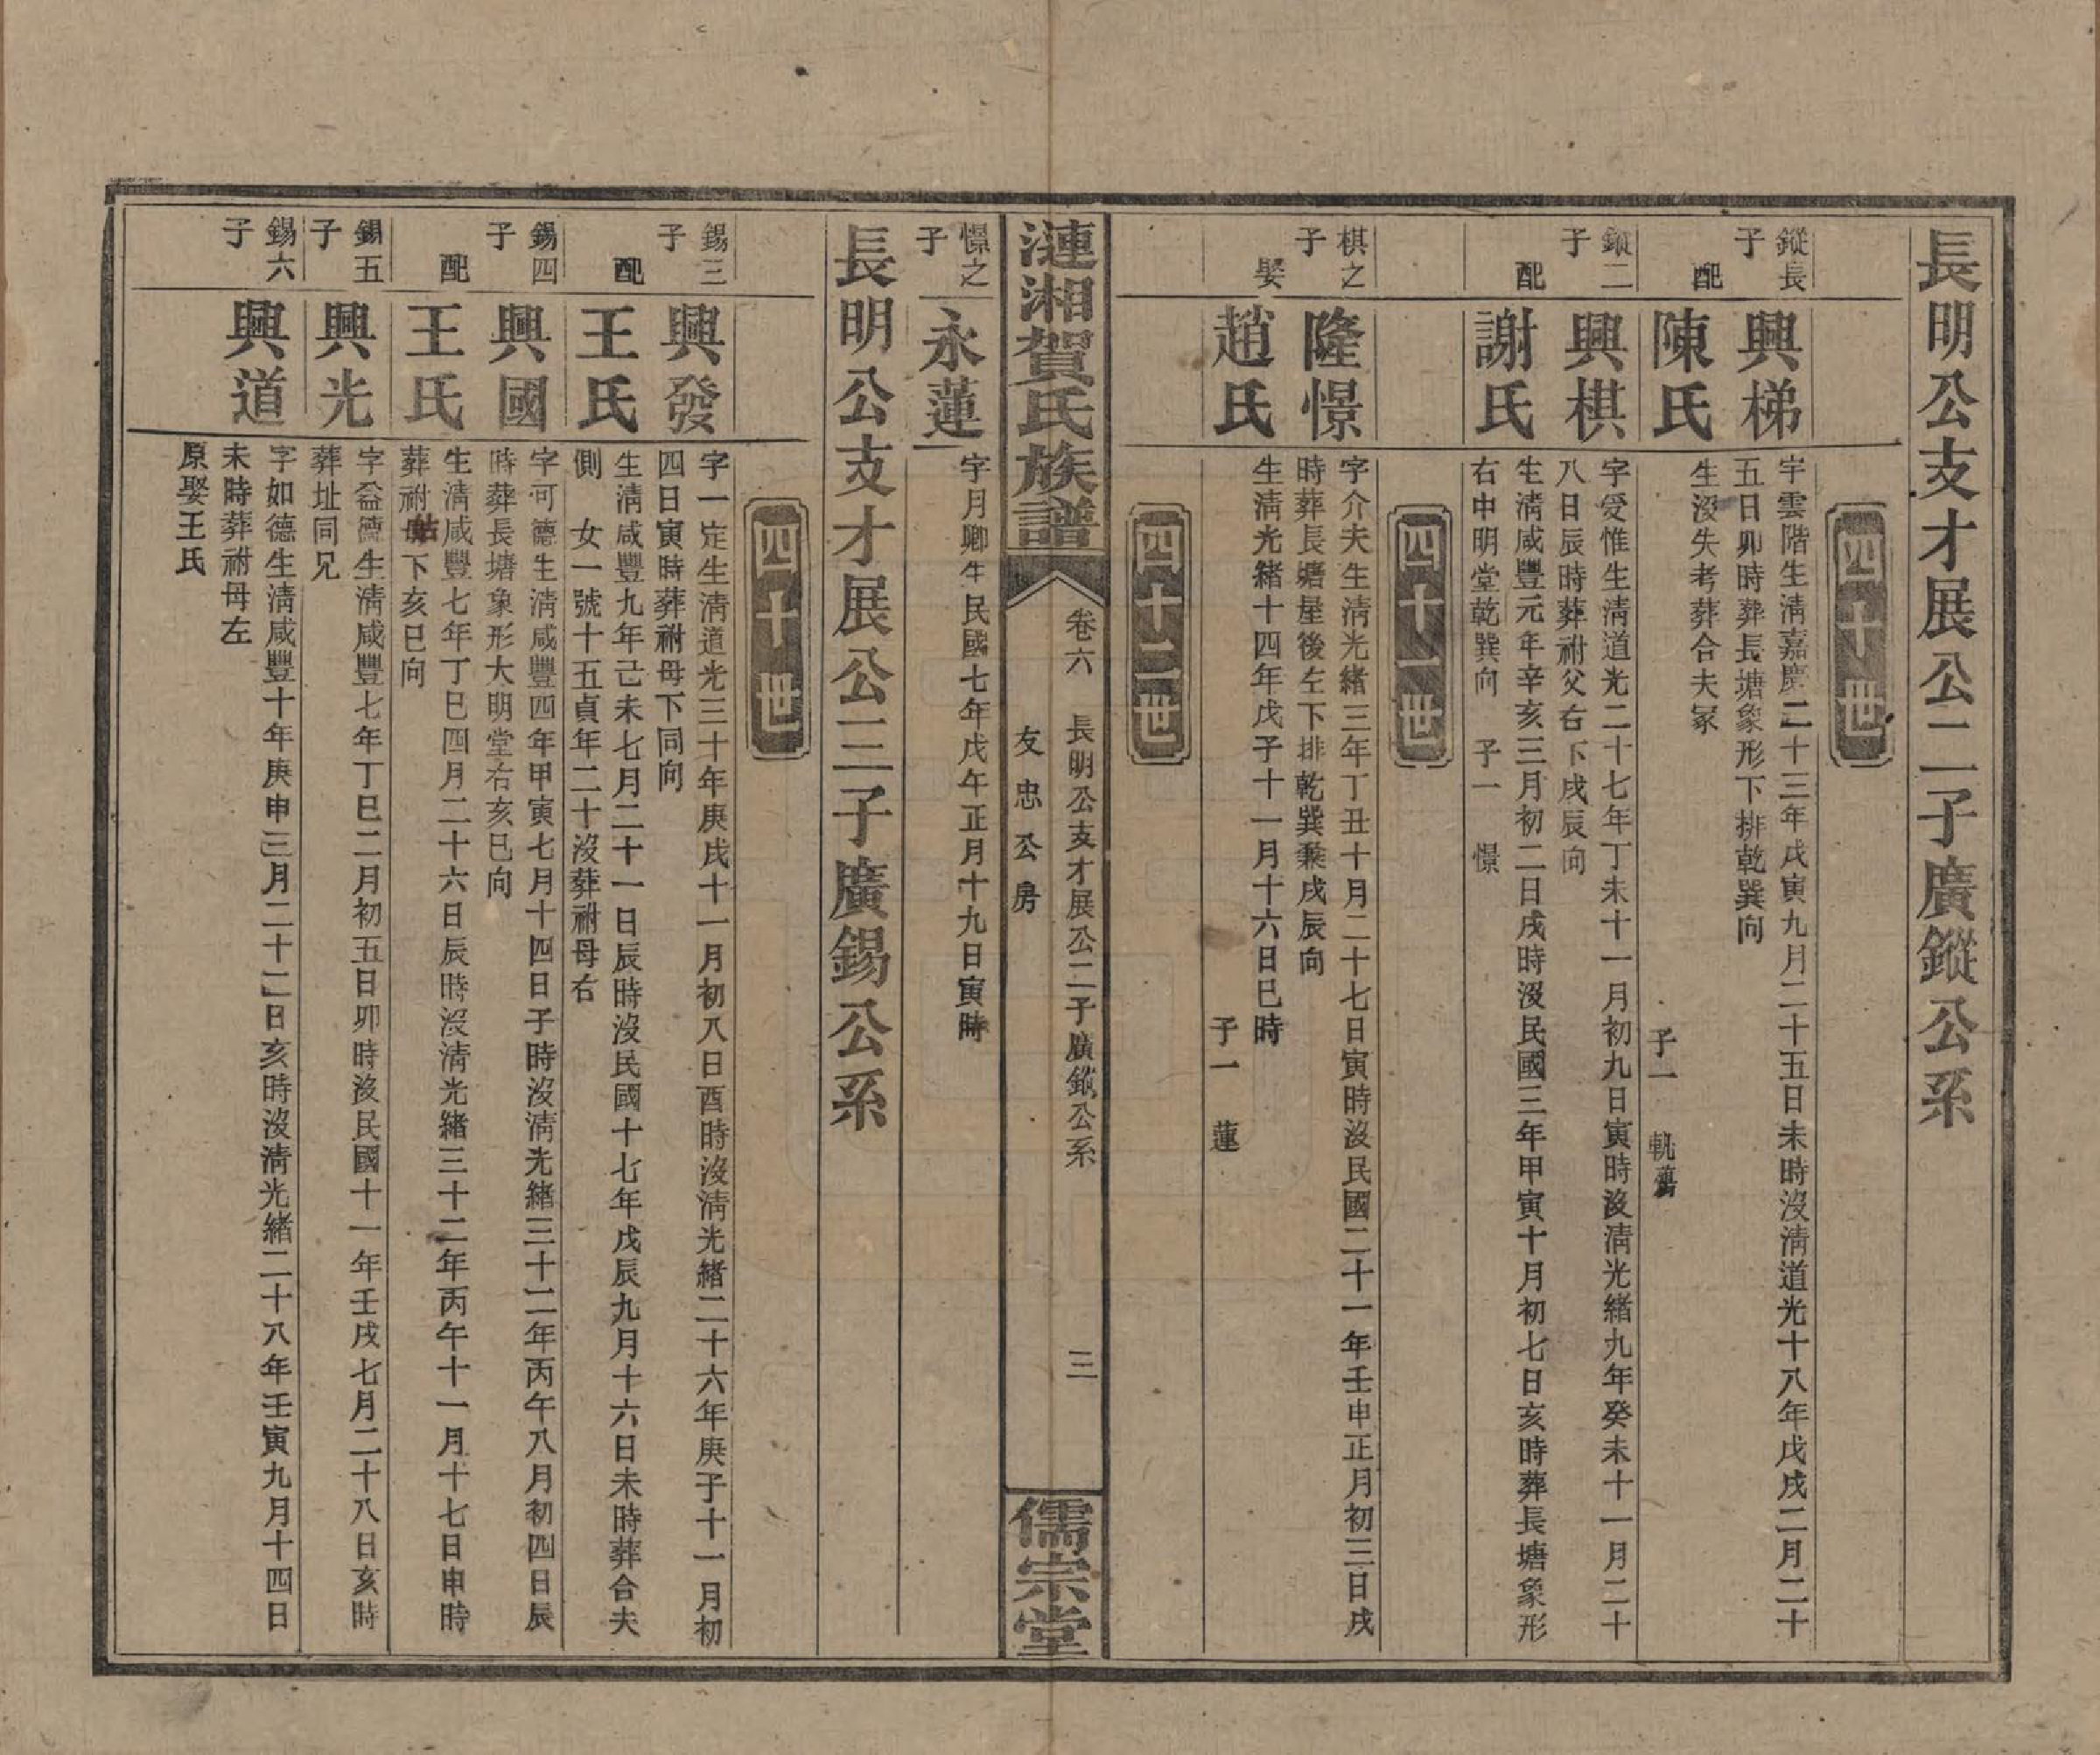 長明公支才展公二子廣鏦公系
四十世
鏦長子
興梯
字雲階生清嘉慶二十三年戊寅九月二十五日未時沒清道光十八年戊戌二月二十
五日卯時葬長塘象形下排乾巽向
配
陳氏
生沒失考葬合夫冢
子一 軏
鏦二子
興棋
字受惟生清道光二十七年丁未十一月初九日寅時沒清光緒九年癸未十一月二十
八日辰時葬祔父右下戌辰向
配
謝氏
生清咸豐元年辛亥三月初二日戌時沒民國三年甲寅十月初七日亥時葬長塘象形
右申明堂乾巽向 子一 憬
四十一世
棋之子
隆憬
字介夫生清光緒三年丁丑十月二十七日寅時沒民國二十一年壬申正月初三日戌
時葬長塘屋後左下排乾巽兼戌辰向
娶
趙氏
生清光緒十四年戊子十一月十六日巳時
子一 蓮
四十二世
漣湘賀氏族譜
卷六 長明公支才展公二子廣鏦公系 三
友忠公房
儒宗堂
憬之子
永蓮
字月卿生民國七年戊午正月十九日寅時
長明公支才展公三子廣錫公系
四十世
錫三子
興發
字一定生清道光三十年庚戌十一月初八日酉時沒清光緒二十六年庚子十一月初
四日寅時葬祔母下同向
配
王氏
生清咸豐九年己未七月二十一日辰時沒民國十七年戊辰九月十六日未時葬合夫
側 女一號十五貞年二十沒葬祔母右
錫四子
興國
字可德生清咸豐四年甲寅七月十四日子時沒清光緒三十二年丙午八月初四日辰
時葬長塘象形大明堂右亥巳向
配
王氏
生清咸豐七年丁巳四月二十六日辰時沒清光緒三十二年丙午十一月十七日申時
葬祔母下亥巳向
錫五子
興光
字益德生清咸豐七年丁巳二月初五日卯時沒民國十一年壬戌七月二十八日亥時
葬址同兄
錫六子
興道
字如德生清咸豐十年庚申三月二十二日亥時沒清光緒二十八年壬寅九月十四日
未時葬祔母左
原娶王氏